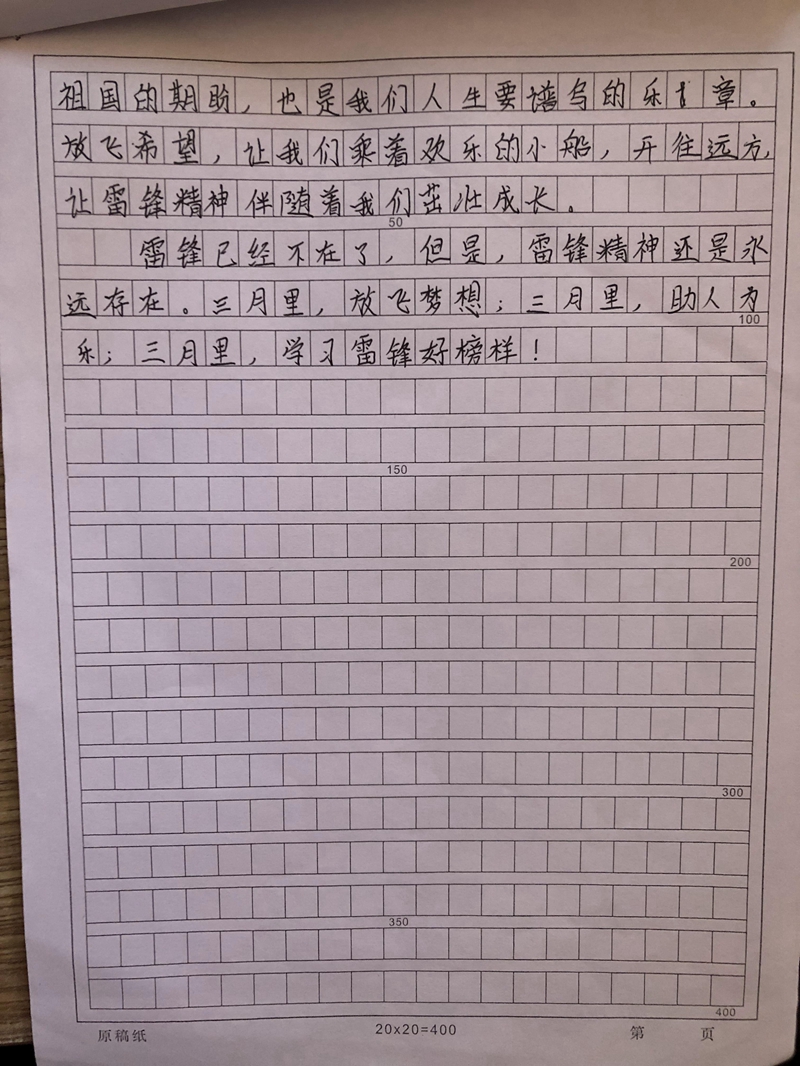 祖国的期盼，也是我们人生要谱写的乐章。
放飞希望，让我们乘着欢乐的小船，开往远方，
让雷锋精神伴随着我们茁壮成长。
50
雷锋已经不在了，但是，雷锋精神还是永
远存在。三月里，放飞梦想；三月里，助人为
100
乐；三月里，学习雷锋好榜样！
150
200
300
350
400
原稿纸 20x20=400 第 页